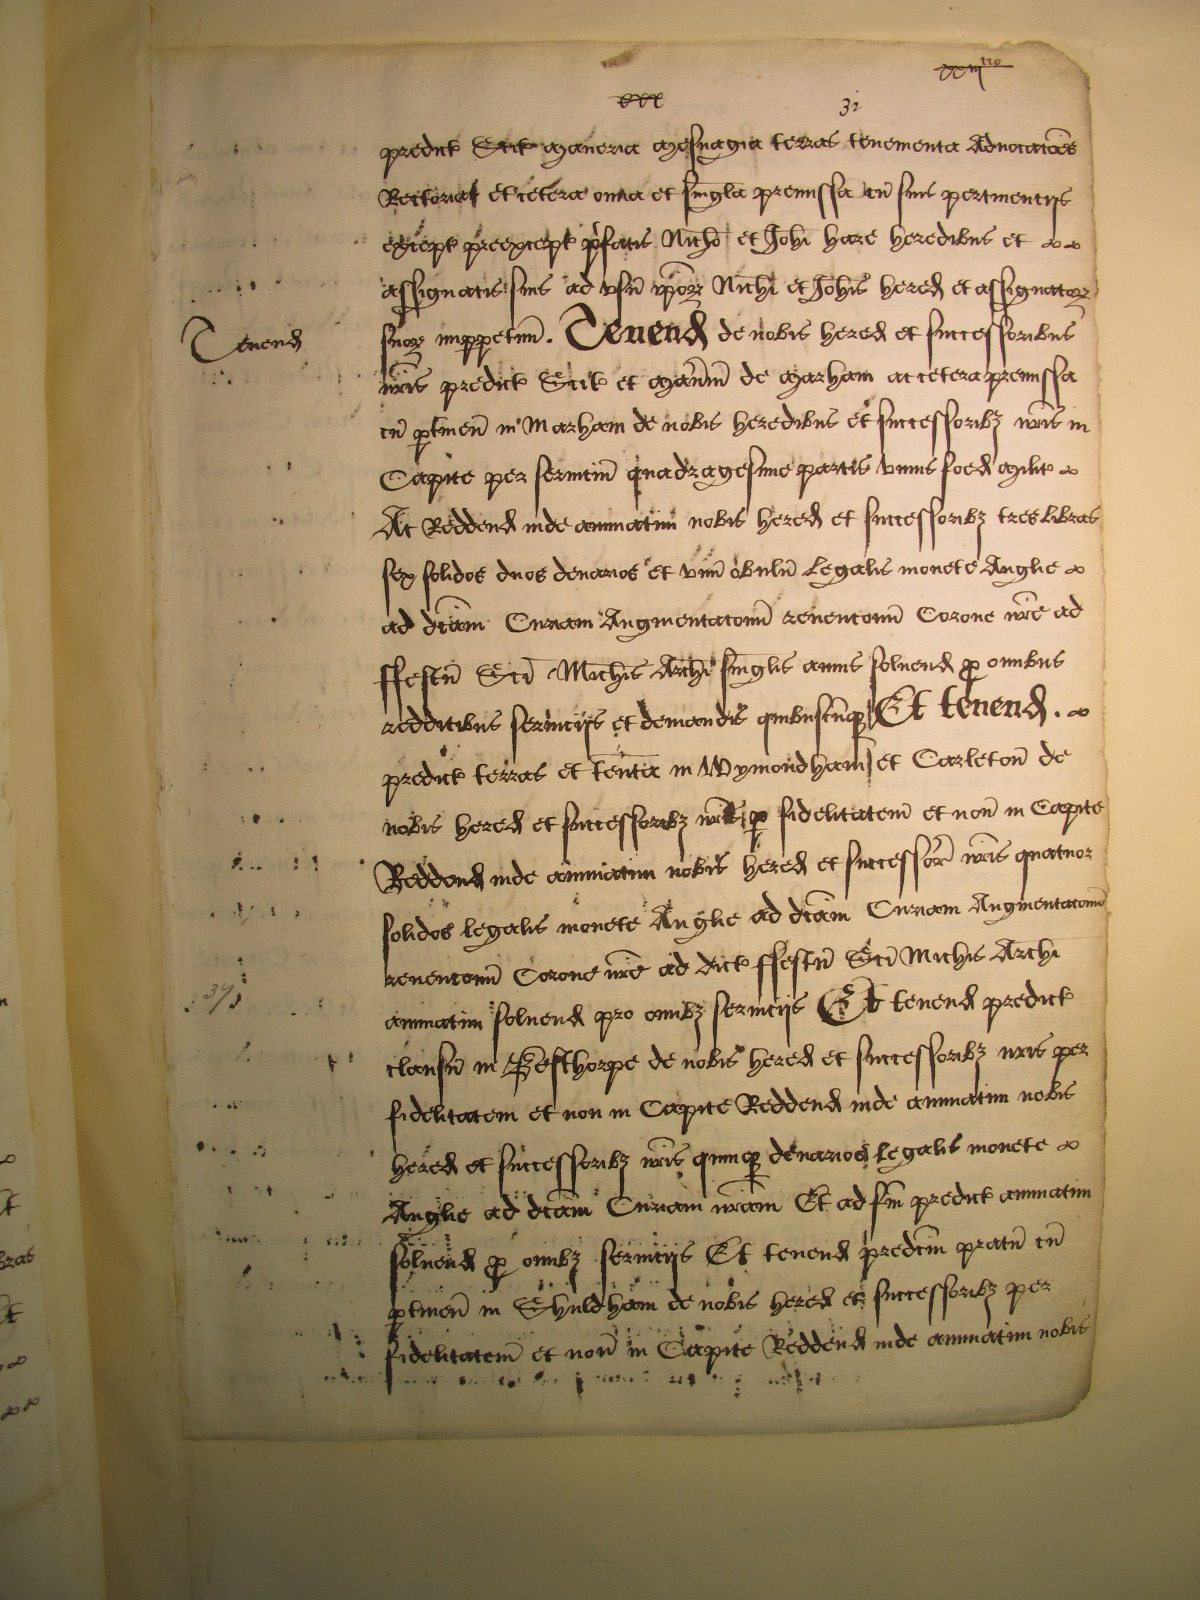 xxx
31
predict Scit Maneria Mesuagia terras tenementa Advocacoes
Rectorias et cetera omnia et singula premissa cū suis pertinencijs
except preexcept pfatis Nicho et Johi Hare heredibus et
assignatis suis ad usū ipoꝝ Nichi et Johis hered et assignatoꝝ
Tenend
suoꝝ imppetuū. Tenend de nobis hered et successoribus
nris predict Scit et Maniū de Marham ac cetera premissa
cū ptineñ in Marham de nobis heredibus et successoribꝫ nris in
Capite per serviciū quadragesime partis unius foed Milit
Ac Reddend inde annuatim nobis hered et successoribꝫ tres libras
sex solidos duos denarios et unū obulū Legalis monete Anglie
ad dcam Curiam Augmentacionū revencionū Corone nre ad
ffestū Sci Michis Archi singlis annis solvend ꝓ omnibus
redditibus servicijs et demandis quibuscūqꝫ Et tenend.
predict terras et tenta in Wymondham et Carletoñ de
nobis hered et successoribꝫ nris ꝑ fidelitatem et noñ in Capite
Reddend inde annuatim nobis hered et successor nris quatuor
solidos legalis monete Anglie ad dcam Curiam Augmentacionū
revencionū Corone nre ad dict ffestū Sci Michis Archi
37
annuatim solvend pro omibꝫ servicijs Et tenend predict
clausū in Besthorpe de nobis hered et successoribꝫ nris per
fidelitatem et non in Capite Reddend inde annuatim nobis
hered et successoribꝫ nris quinqꝫ denarios Legalis monete
Anglie ad dcam Curiam nram Et ad fm predict annuatim
solvend ꝓ omibꝫ servicijs Et tenend predcm pratū cū
ptineñ in Shuldham de nobis hered et successoribꝫ per
fidelitatem et noñ in Capite Reddend inde annuatim nobis